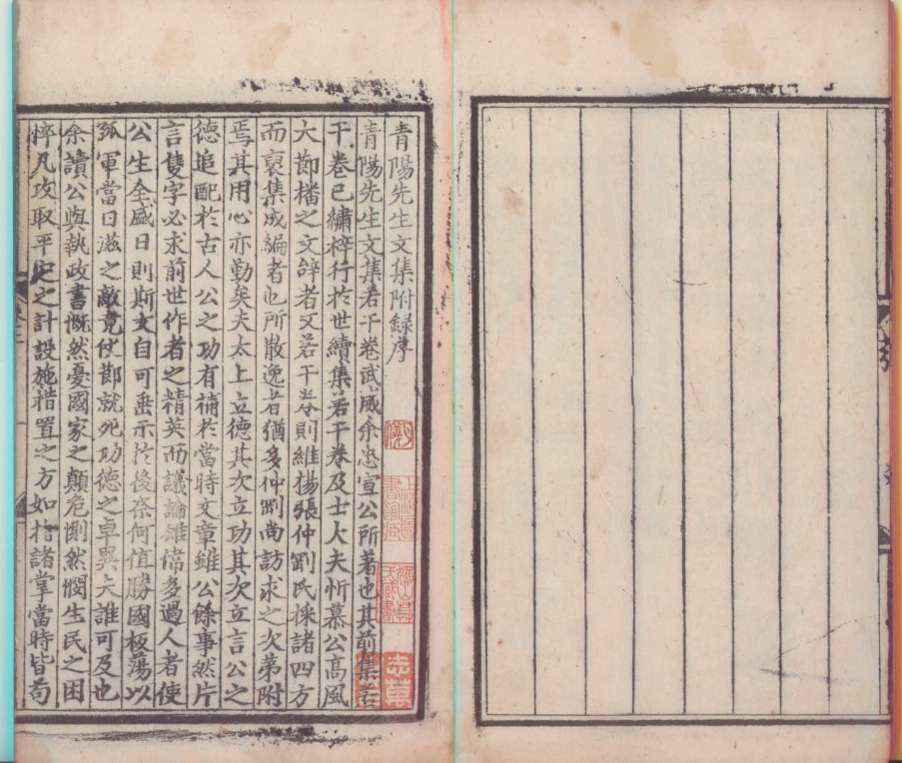 青陽先生文集附録序
青陽先生文集若干卷武威余忠宣公所著也其前集若
干卷已繡梓行於世續集若干卷及士大夫忻慕公高風
大節播之文辭者又若干卷則維揚張仲剛氏採諸四方
而裒集成編者也所散逸者猶多仲剛尚訪求之次第附
焉其用心亦勤矣夫太上立德其次立功其次立言公之
德追配於古人公之功有補於當時文章雖公餘事然片
言隻字必求前世作者之精英而議論雄偉多過人者使
公生全盛日則斯文自可垂示於後奈何值勝國板蕩以
孤軍當日滋之敵竟仗節就死功德之卓異夫誰可及也
余讀公與執政書慨然憂國家之顛危惻然憫生民之困
悴凡攻取平定之計設施措置之方如指諸掌當時皆苟